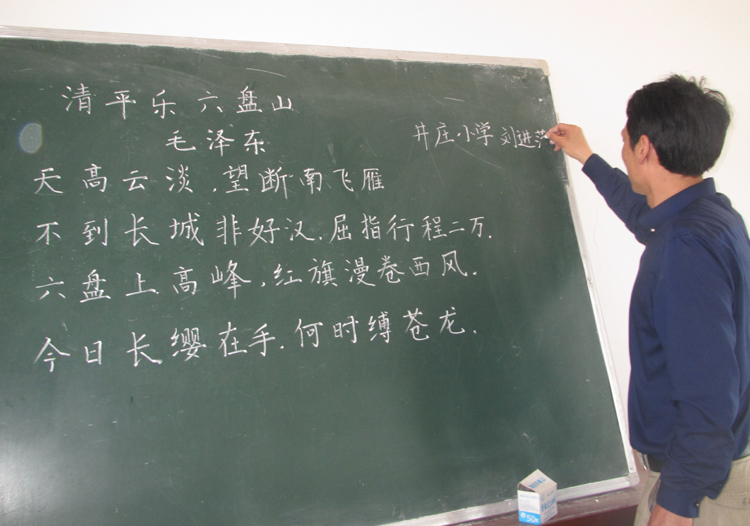 清平乐 六盘山
毛泽东
井庄小学 刘进
天高云淡，望断南飞雁
不到长城非好汉，屈指行程二万．
六盘上高峰，红旗漫卷西风．
今日长缨在手．何时缚苍龙．
50